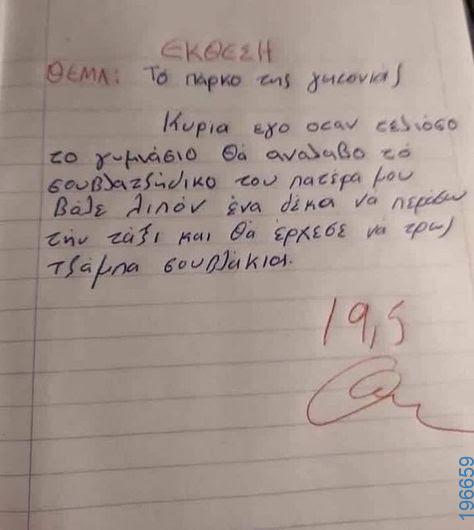 ΕΚΘΕΣΗ
ΘΕΜΑ: Το παρκο της γιτονιάς
Κυρια εγο οταν τελιόσο
το γυμνάσιο θά αναλαβο τό
σουβλατζίδικο του πατέρα μου
βάλε λιπόν ένα δέκα νά περάσω
τήν τάξι και θά έρχεσε νά τρως
τζάμπα σουβλάκια.
19,5
196659